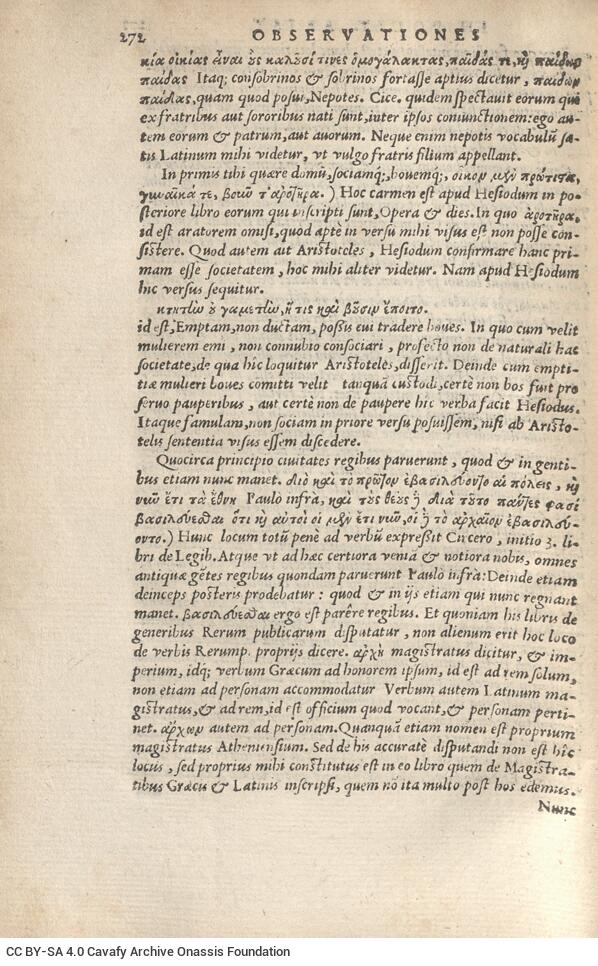 272 OBSERVATIONES
κία οἰκίας εἶναι οὓς καλοῦσί τινες ὁμογάλακτας, παῖδάς τε, κỳ παίδων
παῖδας Itaq; consobrinos & sobrinos fortasse aptius dicetur, παίδων
παῖδας, quam quod posui, Nepotes. Cice. quidem spectauit eorum qui
ex fratribus aut sororibus nati sunt, inter ipsos coniunctionem: ego au-
tem eorum & patrum, aut auorum. Neque enim nepotis vocabulū sa-
tis Latinum mihi videtur, vt vulgo fratris filium appellant.
In primis tibi quære domū, sociamq;, bouemq;, οἶκον μὲν πρώτιστα,
γυναῖκά τε, βοῦν τ' ἀροτῆρα. ) Hoc carmen est apud Hesiodum in po-
steriore libro eorum qui inscripti sunt, Opera & dies. In quo ἀροτῆρα,
id est aratorem omisi, quod aptè in versu mihi visus est non posse con-
sistere. Quod autem ait Aristoteles, Hesiodum confirmare hanc pri-
mam esse societatem, hoc mihi aliter videtur. Nam apud Hesiodum
hic versus sequitur.
κτητὴν οὐ γαμετὴν, ἥ τις καὶ βουσὶν ἕποιτο.
id est, Emptam, non ductam, possis cui tradere boues. In quo cum velit
mulierem emi, non connubio consociari, profecto non de naturali hac
societate, de qua hîc loquitur Aristoteles, disserit. Deinde cum empti-
tiæ mulieri boues comitti velit tanquā custodi, certè non bos fuit pro
seruo pauperibus, aut certè non de paupere hîc verba facit Hesiodus.
Itaque famulam, non sociam in priore versu posuissem, nisi ab Aristo-
telis sententia visus essem discedere.
Quocirca principio ciuitates regibus paruerunt, quod & in genti-
bus etiam nunc manet. διὸ καὶ τὸ πρῶτον ἐβασιλεύοντο αἱ πόλεις, κỳ
νῦν ἔτι τὰ ἔθνη Paulò infrà, καὶ τοὺς θεοὺς δὲ διὰ τοῦτο πάντες φασὶ
βασιλεύεσθαι ὅτι κỳ αὐτοὶ οἱ μὲν ἔτι νῦν, οἱ δὲ τὸ ἀρχαῖον ἐβασιλεύ-
οντο. ) Hunc locum totū penè ad verbū expreßit Cicero, initio 3. li-
bri de Legib. Atque vt ad hæc certiora veniā & notiora nobis, omnes
antiquæ gētes regibus quondam paruerunt Paulò infrà: Deinde etiam
deinceps posteris prodebatur : quod & in ijs etiam qui nunc regnant
manet. βασιλεύεσθαι ergo est parêre regibus. Et quoniam his libris de
generibus Rerum publicarum disputatur, non alienum erit hoc loco
de verbis Rerump. proprijs dicere. ἀρχὴ magistratus dicitur, & im-
perium, idq; verbum Græcum ad honorem ipsum, id est ad rem solum,
non etiam ad personam accommodatur Verbum autem Latinum ma-
gistratus, & ad rem, id est officium quod vocant, & personam perti-
net. ἄρχων autem ad personam. Quanquā etiam nomen est proprium
magistratus Atheniensium. Sed de his accuratè disputandi non est hîc
locus, sed proprius mihi constitutus est in eo libro quem de Magistra-
tibus Græcis & Latinis inscripsi, quem nō ita multo post hos edemus.
Nunc
CC BY-SA 4.0 Cavafy Archive Onassis Foundation